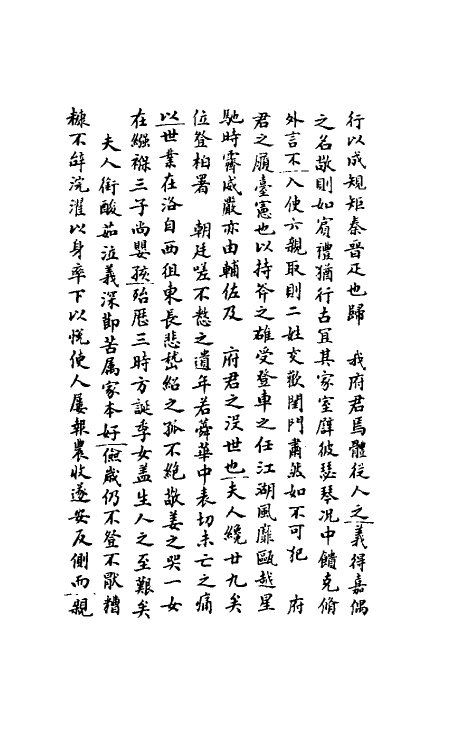 行以成規矩秦晉疋也歸　我府君焉體從人之義得嘉偶
之名敬則如賓禮猶行古冝其家室辟彼瑟琴況中饋克脩
外言不入使六親取則二姓交歡閨門肅然如不可犯　府
君之履臺憲也以持斧之雄受登車之任江湖風靡甌越星
馳時霽威嚴亦由輔佐及　府君之沒世也夫人纔廿九矣
位登柏署　朝廷嗟不憖之遺年若蕣華中表切未亡之痛
以世業在洛自西徂東長悲嵇紹之孤不絕敬姜之哭一女
在繈褓三子尚嬰孩殆歷三時方誕季女蓋生人之至艱矣
夫人銜酸茹泣義深節苦属家本好儉歲仍不登不厭糟
糠不辞浣濯以身率下以悅使人屢報農收遂安反側而親